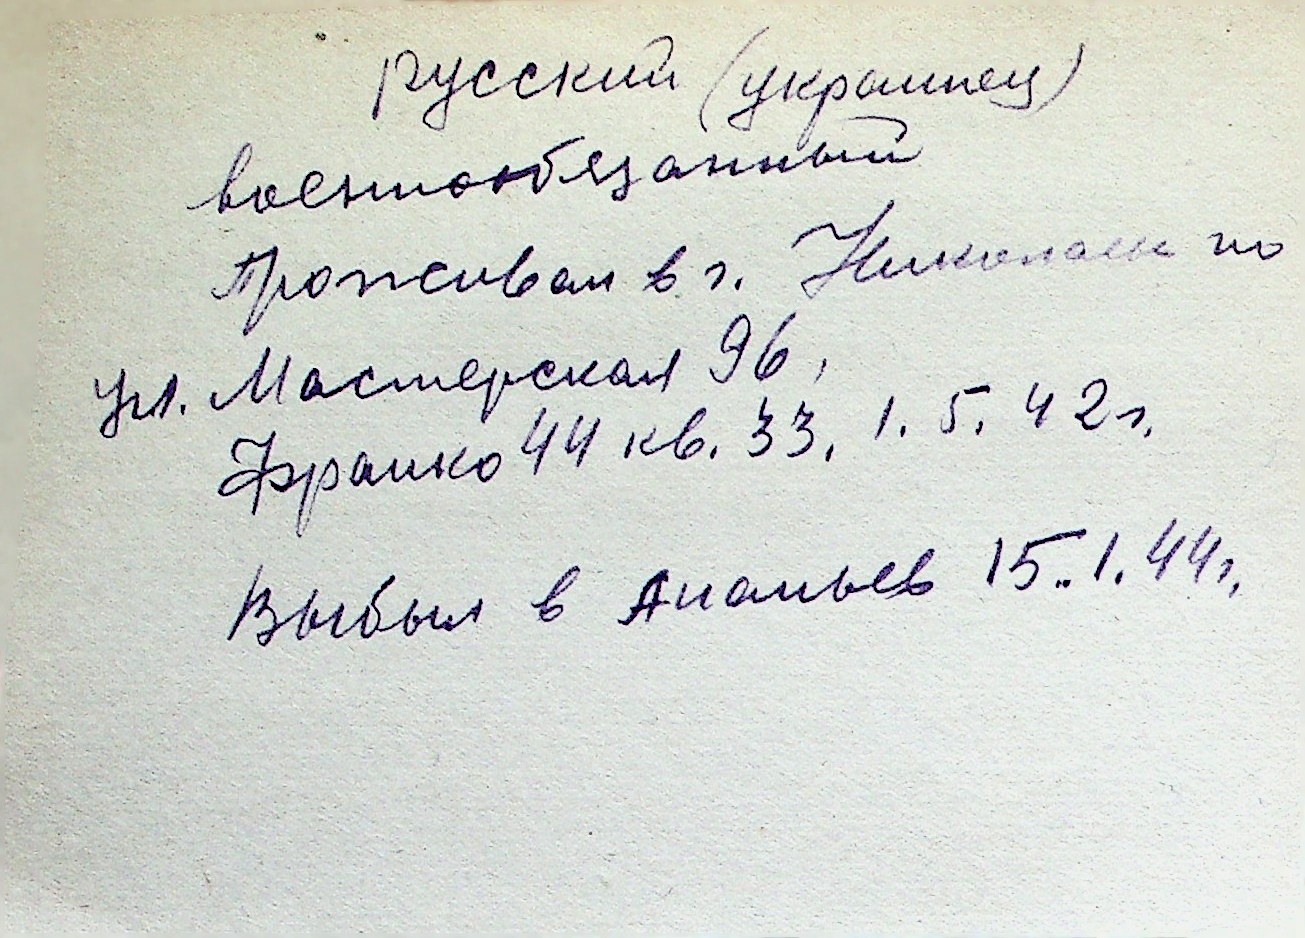 русский (украинец)
военнообязанный
Проживал в г. Николаеве по
ул. Мастерская 96,
Франко 44 кв. 33. 1. 5. 42 г.
Выбыл в Ананьев 15.1.44 г.